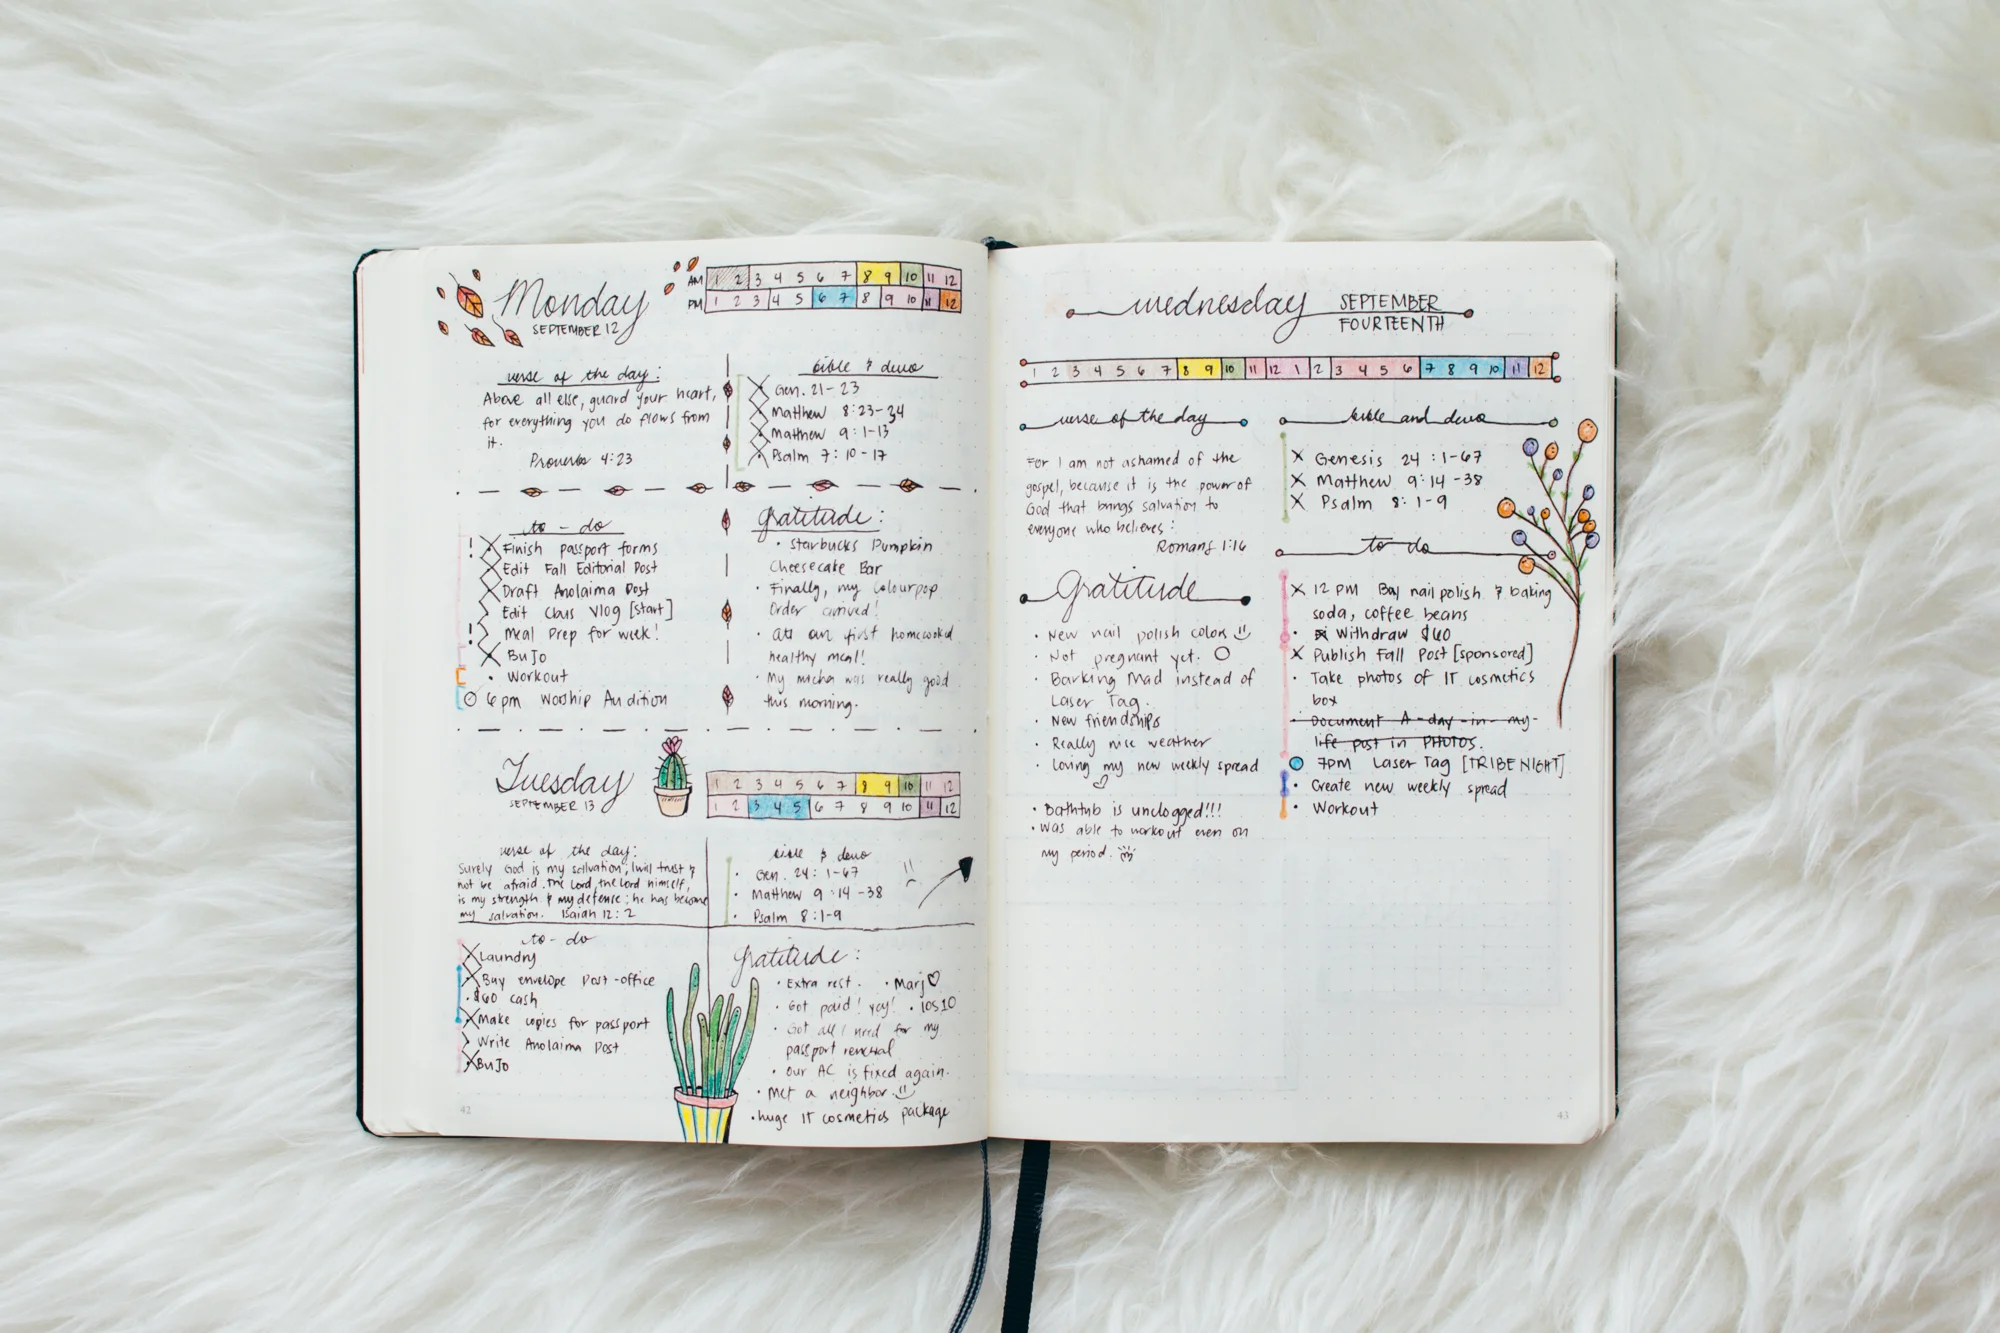 Monday
SEPTEMBER 12
AM 1 2 3 4 5 6 7 8 9 10 11 12
PM 1 2 3 4 5 6 7 8 9 10 11 12
verse of the day:
Above all else, guard your heart,
for everything you do flows from
it.
Proverbs 4:23
bible & devo
Gen. 21-23
Matthew 8:23-34
Matthew 9:1-13
Psalm 7:10-17
to-do
! Finish passport forms
Edit Fall Editorial Post
Draft Anolaima Post
Edit Vlog [start]
! Meal Prep for week!
BuJo
Workout
6pm Worship Audition
gratitude:
• Starbucks Pumpkin
Cheesecake Bar
• Finally, my Colourpop
Order arrived!
• our first homecooked
healthy meal!
• My micha was really good
this morning.
Tuesday
SEPTEMBER 13
1 2 3 4 5 6 7 8 9 10 11 12
1 2 3 4 5 6 7 8 9 10 11 12
verse of the day:
Surely God is my salvation; I will trust &
not be afraid. The Lord, the Lord himself,
is my strength & my defense; he has become
my salvation. Isaiah 12:2
bible & devo
• Gen. 24: 1-67
• Matthew 9:14-38
• Psalm 8:1-9
to-do
Laundry
Buy envelope Post-office
• $60 cash
Make copies for passport
Write Anolaima Post
BuJo
gratitude:
• Extra rest. • Marj
• Got paid! yay! • ios10
• Got all I need for my
passport renewal
• our AC is fixed again.
• Met a neighbor
• huge IT cosmetics package
42
wednesday SEPTEMBER
FOURTEENTH
1 2 3 4 5 6 7 8 9 10 11 12 1 2 3 4 5 6 7 8 9 10 11 12
verse of the day
For I am not ashamed of the
gospel, because it is the power of
God that brings salvation to
everyone who believes:
Romans 1:16
Gratitude
• New nail polish colors
• Not pregnant yet.
• Barking Mad instead of
Laser Tag.
• New friendships
• Really nice weather
• Loving my new weekly spread
• Bathtub is unclogged!!!
• Was able to workout even on
my period.
bible and devo
X Genesis 24:1-67
X Matthew 9:14-38
X Psalm 8:1-9
to do
X 12 PM Buy nail polish & baking
soda, coffee beans
• Withdraw $60
X Publish Fall Post [sponsored]
• Take photos of IT cosmetics
box
• Document A-day-in-my-
life post in PHOTOS.
7pm Laser Tag [TRIBE NIGHT]
• Create new weekly spread
• Workout
43